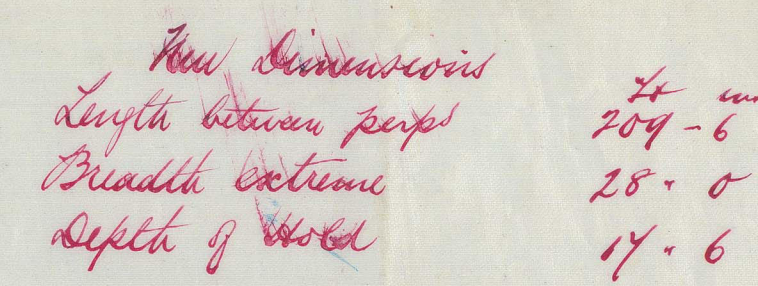 New Dimensions
Ft
Length between perps 209 - 6
Breadth extreme 28 " 0
Depth of Hold 17 " 6